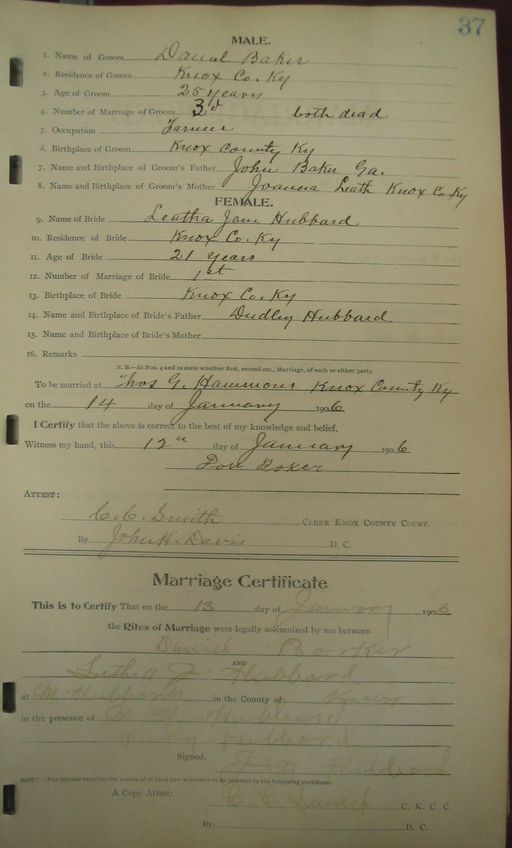 37
MALE.
1. Name of Groom Daniel Baker
2. Residence of Groom Knox Co. Ky
3. Age of Groom 25 years
4. Number of Marriage of Groom 3d both dead
5. Occupation Farmer
6. Birthplace of Groom Knox County Ky
7. Name and Birthplace of Groom's Father John Baker Ga.
8. Name and Birthplace of Groom's Mother Joanna Leath Knox Co. Ky
FEMALE.
9. Name of Bride Leatha Jane Hubbard
10. Residence of Bride Knox Co. Ky
11. Age of Bride 21 years
12. Number of Marriage of Bride 1st
13. Birthplace of Bride Knox Co. Ky
14. Name and Birthplace of Bride's Father Dudley Hubbard
15. Name and Birthplace of Bride's Mother
16. Remarks
N. B.—At Nos. 4 and 12 state whether first, second etc., Marriage, of such or either party.
To be married at Thos G. Hammons Knox County Ky
on the 14 day of January 1906
I Certify that the above is correct to the best of my knowledge and belief.
Witness my hand, this 12th day of January 1906
Attest:
C. C. Smith Clerk Knox County Court.
By John H. Davis D. C.
Marriage Certificate
This is to Certify That on the 13 day of January 1906
the Rites of Marriage were legally solemnized by me between
Daniel Barker
AND
Hubbard
at M Hubbards in the County of Knox
in the presence of M Hubbard
Hubbard
Signed, Hubbard
NOTE.—The Statute requires the names of at least two witnesses to be inserted in the foregoing Certificate.
A Copy Attest: C. C. Smith C. K. C. C.
By D. C.